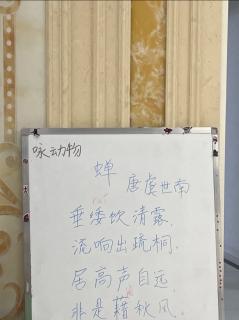 咏动物
蝉
唐虞世南
垂緌饮清露,
流响出疏桐.
居高声自远,
非是藉秋风.